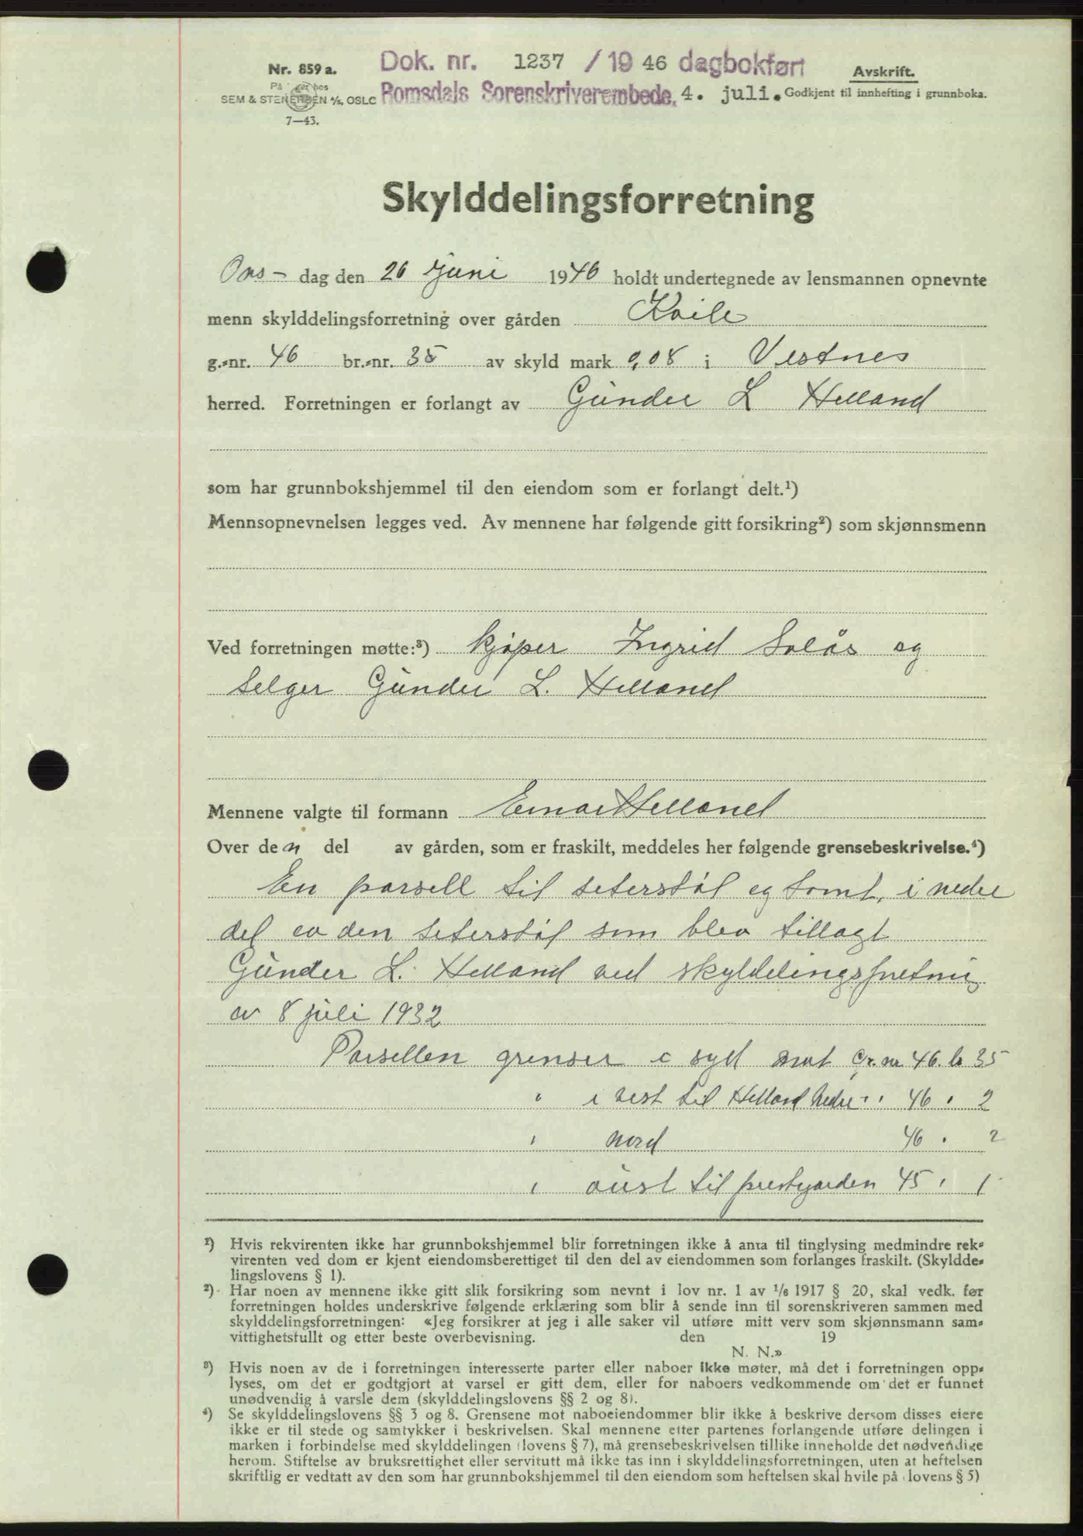 Nr. 859 a.
Dok. nr. 1237 / 19 46 dagbokført
Avskrift.
SEM & STENERSEN A/S, OSLO
Romsdals Sorenskriverembede, 4. juli.
Godkjent til innhefting i grunnboka.
7—43.
Skylddelingsforretning
Ons- dag den 26 juni 1946 holdt undertegnede av lensmannen opnevnte
menn skylddelingsforretning over gården Kvile
g.-nr. 46 br.-nr. 35 av skyld mark 0,08 i Vestnes
herred. Forretningen er forlangt av Gunder L Helland
som har grunnbokshjemmel til den eiendom som er forlangt delt.¹)
Mennsopnevnelsen legges ved. Av mennene har følgende gitt forsikring²) som skjønnsmenn
Ved forretningen møtte:³) kjøper Ingrid Solås og
selger Gunder L. Helland
Mennene valgte til formann Einar Helland
Over den del av gården, som er fraskilt, meddeles her følgende grensebeskrivelse.⁴)
En parsell til seterstøl og tomt, i nedre
del av den seterstøl som blev tillagt
Gunder L. Helland ved skyldelingsfretning
av 8 juli 1932
Parsellen grenser i syd mot Gr. nr 46. br 35
" i vest til Helland nedre " " 46 " 2
" nord 46 " 2
" aust til prestgarden 45 " 1
¹) Hvis rekvirenten ikke har grunnbokshjemmel blir forretningen ikke å anta til tinglysing medmindre rek-
virenten ved dom er kjent eiendomsberettiget til den del av eiendommen som forlanges fraskilt. (Skyldde-
lingslovens § 1).
²) Har noen av mennene ikke gitt slik forsikring som nevnt i lov nr. 1 av 1/6 1917 § 20, skal vedk. før
forretningen holdes underskrive følgende erklæring som blir å sende inn til sorenskriveren sammen med
skylddelingsforretningen: «Jeg forsikrer at jeg i alle saker vil utføre mitt verv som skjønnsmann sam-
vittighetsfullt og etter beste overbevisning. den 19
N. N.»
³) Hvis noen av de i forretningen interesserte parter eller naboer ikke møter, må det i forretningen opp-
lyses, om det er godtgjort at varsel er gitt dem, eller for naboers vedkommende om det er funnet
unødvendig å varsle dem (skylddelingslovens §§ 2 og 8).
⁴) Se skylddelingslovens §§ 3 og 8. Grensene mot naboeiendommer blir ikke å beskrive dersom disses eiere
ikke er til stede og samtykker i beskrivelsen. Skal mennene etter partenes forlangende utføre delingen i
marken i forbindelse med skylddelingen (lovens § 7), må grensebeskrivelsen tillike inneholde det nødvendige
herom. Stiftelse av bruksrettighet eller servitutt må ikke tas inn i skylddelingsforretningen, uten at heftelsen
skriftlig er vedtatt av den som har grunnbokshjemmel til den eiendom som heftelsen skal hvile på (lovens § 5)